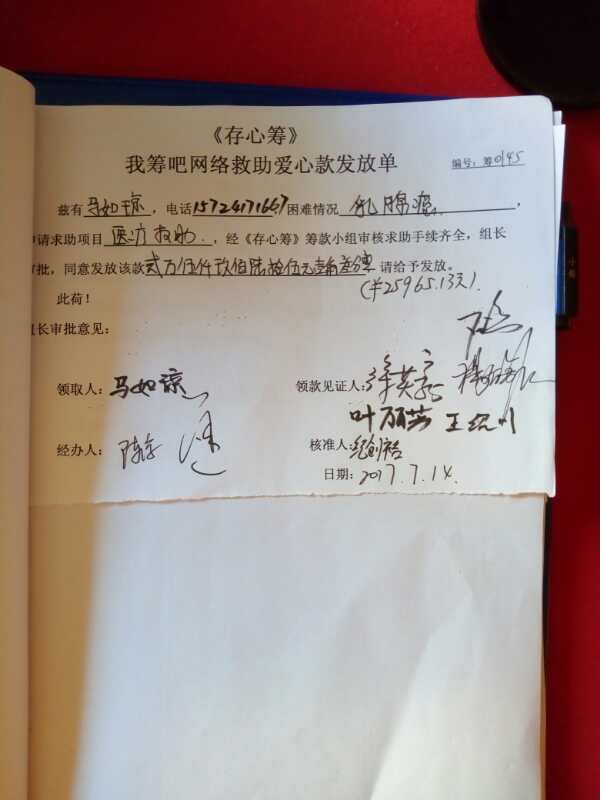 《存心筹》
我筹吧网络救助爱心款发放单
编号：筹0145
兹有马如琼，电话15724171667困难情况乳腺癌，
申请求助项目医疗救助，经《存心筹》筹款小组审核求助手续齐全，组长
审批，同意发放该款贰万伍仟玖佰陆拾伍元壹角叁分 请给予发放。
(¥25965.13元).
此荷！
组长审批意见：
领取人：马如琼 领款见证人：
叶丽芬 王
经办人：陈 核准人：
日期：2017.7.14.